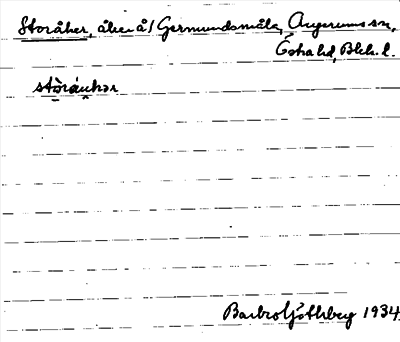 Storåker, åker å/ Germundsmåla, Augerums sn,
Ö hd, Blek. l.
stòráukər
Barbro Ljöthberg 1934